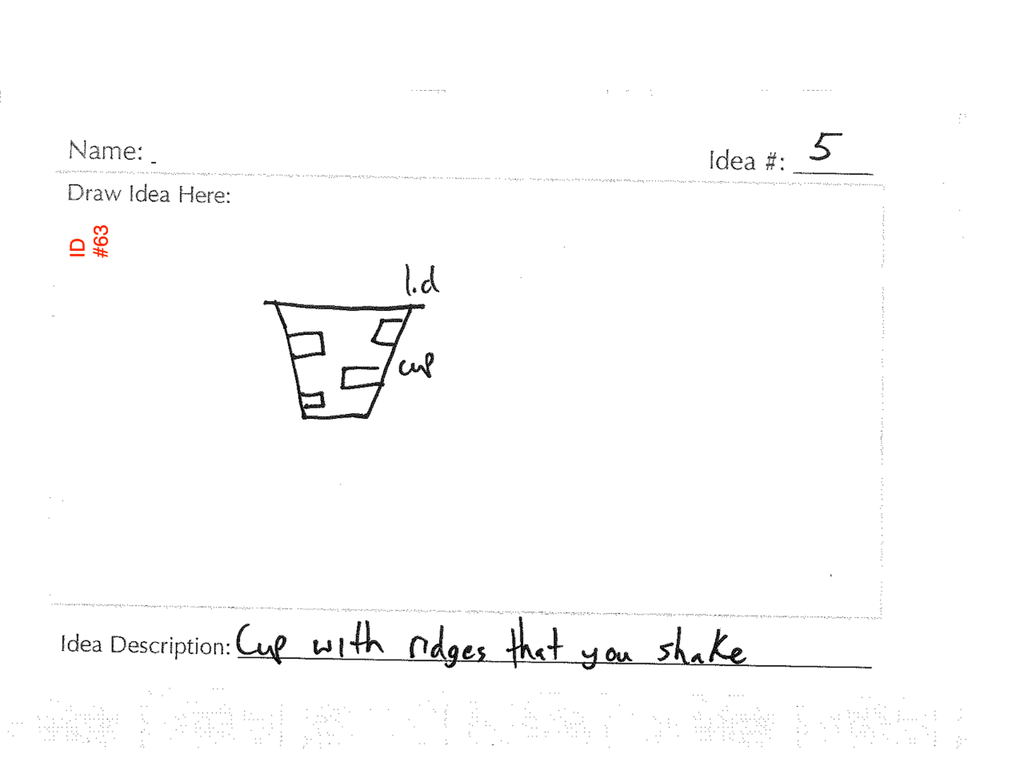 Name:
Idea #: 5
Draw Idea Here:
ID
#63
lid
cup
Idea Description: Cup with ridges that you shake